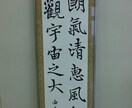 朗氣清惠風
觀宇宙之大